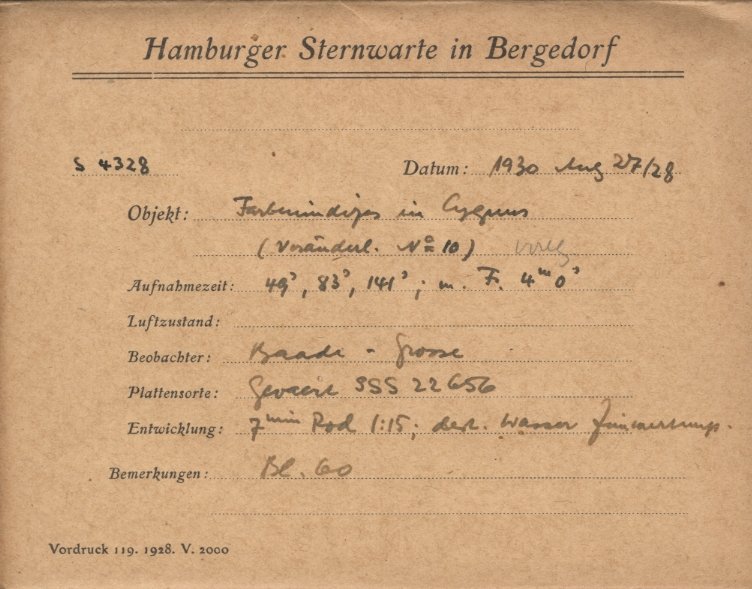 Hamburger Sternwarte in Bergedorf
S 4328
Datum: 1930 Aug 27/28
Objekt: Farbenindizes in Cygnus
(Veränderl. No 10)
Aufnahmezeit: 49s, 83s, 141s; m. F. 4m 0s
Luftzustand:
Beobachter: Baade - Grosse
Plattensorte: Gevaert SSS 22656
Entwicklung: 7min Rod 1:15; dest. Wasser
Bemerkungen: Bl. 60
Vordruck 119. 1928. V. 2000